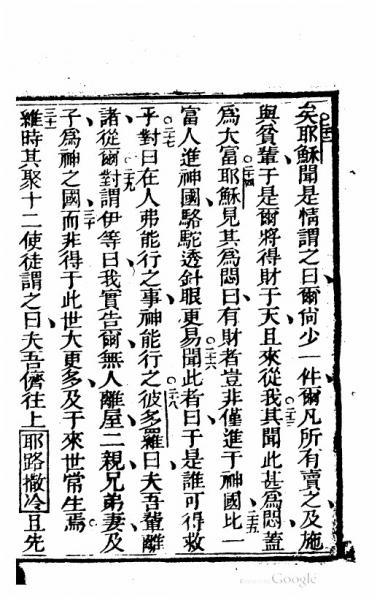 矣耶穌聞是情謂之曰爾尙少一件爾凡所有賣之及施
與貧輩于是爾將得財于天且來從我其聞此甚爲悶蓋
爲大富耶穌見其爲悶曰有財者豈非僅進于神國比一
富人進神國駱駝透針眼更易聞此者曰于是誰可得救
乎對曰在人弗能行之事神能行之彼多羅曰夫吾輩離
諸從爾對謂伊等曰我實告爾無人離屋二親兄弟妻及
子爲神之國而非得于此世大更多及于來世常生焉
維時其聚十二使徒謂之曰夫吾儕往上耶路撒冷且先
二十二
二十三
二十四
二十五
二十六
二十七
二十八
二十九
三十
三十一
Google